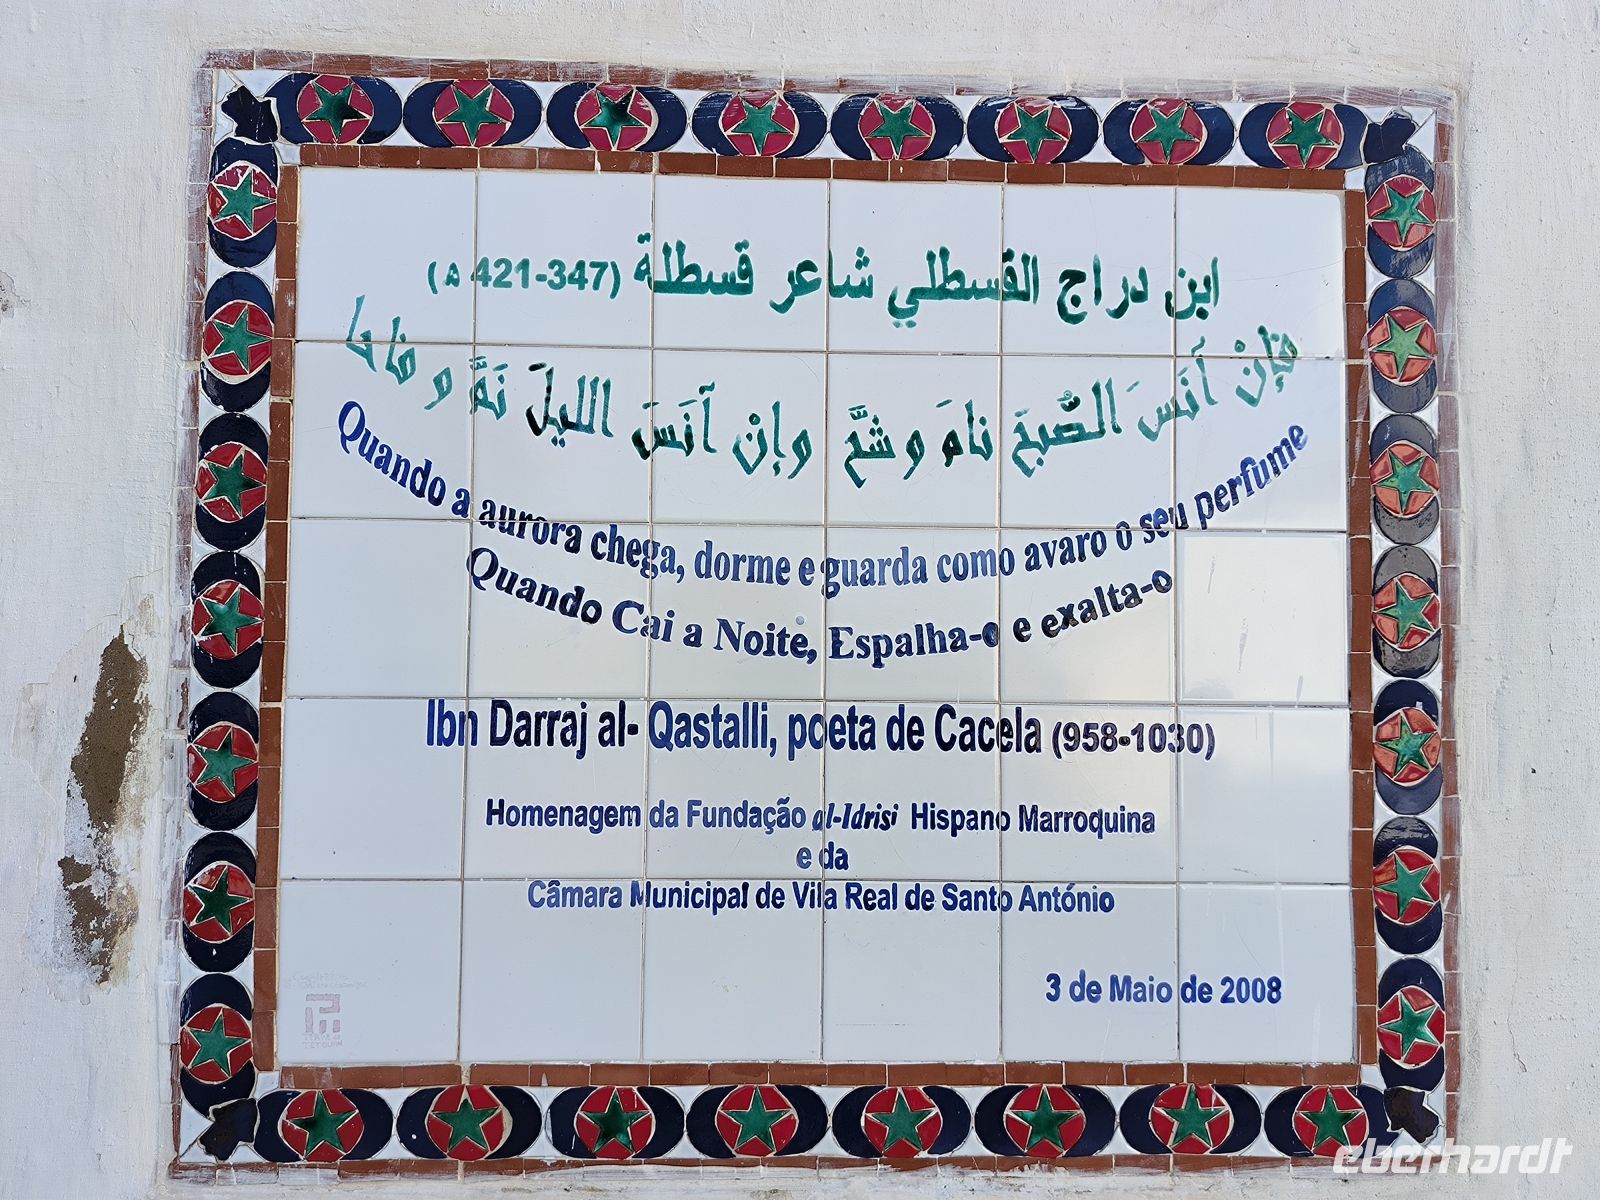 ابن دراج القسطلي شاعر قسطلة (347-421 ه)
فإنْ آنَسَ الصُّبحَ نامَ وشَّح وإنْ آنَسَ الليلَ نَمَّ وفاحا
Quando a aurora chega, dorme e guarda como avaro o seu perfume
Quando Cai a Noite, Espalha-o e exalta-o
Ibn Darraj al- Qastalli, poeta de Cacela (958-1030)
Homenagem da Fundação al-Idrisi Hispano Marroquina
e da
Câmara Municipal de Vila Real de Santo António
3 de Maio de 2008
TETOUAN
eberhardt